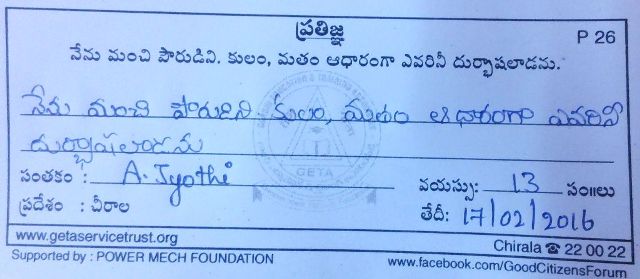 ప్రతిజ్ఞ
P 26
నేను మంచి పౌరుడిని. కులం, మతం ఆధారంగా ఎవరినీ దుర్భాషలాడను.
నేను మంచి పౌరుడిని కులం, మతం ఆధారంగా ఎవరినీ
దుర్భాషలాడను
GETA
సంతకం : A. Jyothi వయస్సు: 13 సం॥లు
ప్రదేశం : చీరాల తేదీ: 17/02/2016
www.getaservicetrust.org Chirala ☎ 22 00 22
Supported by : POWER MECH FOUNDATION www.facebook.com/GoodCitizensForum